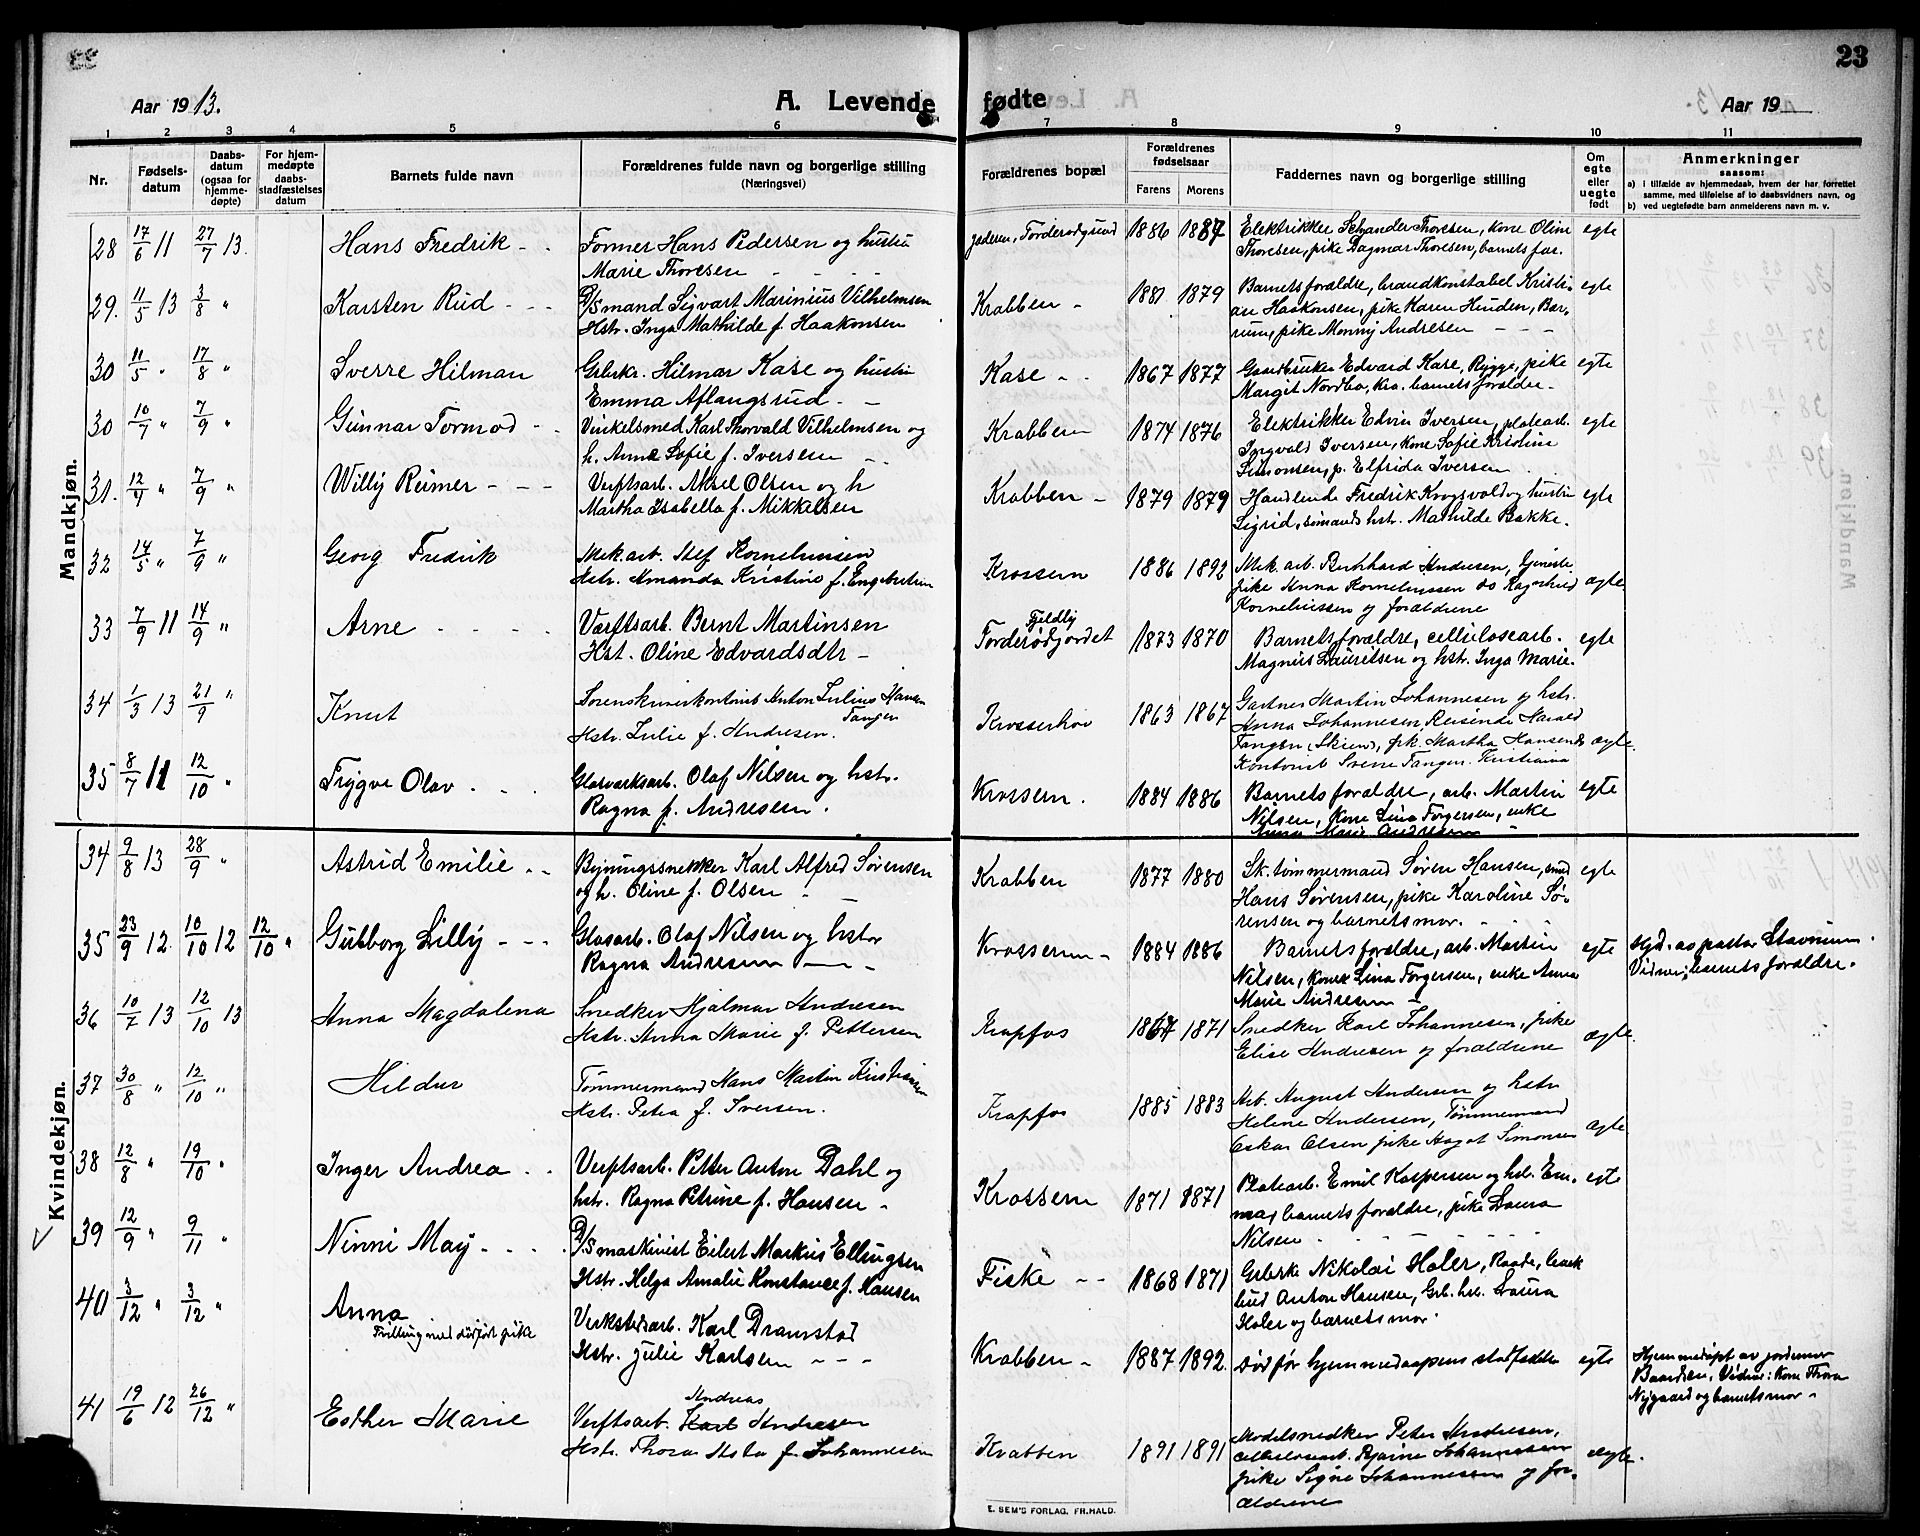 23
Aar 1913.
A. Levende fødte
Aar 19
1 2 3 4 5 6 7 8 9 10 11
Nr.
Fødsels-
datum
Daabs-
datum
(ogsaa for
hjemme-
døpte)
For hjem-
medøpte
daabs-
stadfæstelses
datum
Barnets fulde navn
Forældrenes fulde navn og borgerlige stilling
(Næringsvei)
Forældrenes bopæl
Forældrenes
fødselsaar
Farens Morens
Faddernes navn og borgerlige stilling
Om
egte
eller
uegte
født
Anmerkninger
saasom:
a) i tilfælde av hjemmedaab, hvem der har forrettet
samme, med tilføielse af to daabsvidners navn, og
b) ved uegtefødte barn anmelderens navn m. v.
Mandkjøn.
28 17/6 11 27/7 13. Hans Fredrik - - Former Hans Pedersen og hustru
Marie Thoresen
1886 1887 Elektrikker Thoresen, kone Oline
Thoresen, pike Dagmar Thoresen, barnets far. egte
29. 11/5 13 3/8 " Karsten Rud - - - D/Smand Sigvart Marinius Vilhelmsen
Hstr. Inga Mathilde f. Haakonsen
Krabben - 1881 1879 Barnets forældre, brandkonstabel Kristi-
an Haakonsen, pike Karen Hunden, Bær-
um, pike Monny Andresen - - - egte
30 11/5 " 17/8 " Sverre Hilman Grbrkr. Hilmar Kase og hustru
Emma Aflangsrud. -
Kase - . 1867 1877 Gaardbruker Edvard Kase, Rygge, pike
Margit Nordbo, Kra. barnets forældre. egte
30 10/7 " 7/9 " Gunnar Tormod - - Vinkelsmed Karl Thorvald Vilhelmsen og
h. Anna Sofie f. Iversen
Krabben 1874 1876 Elektrikker Edvin Iversen, platearb.
Ingvald Iversen, kone Sofie Kristine
Simonsen, p. Elfrida Iversen egte
31. 12/7 " 7/9 " Willy Reimer - - - Verftsarb. Aksel Olsen og h
Martha Isabella f. Mikkelsen
Krabben - 1879 1879 Handlende Fredrik Krogsvold og hustru
Sigrid, sømands hstr. Mathilde Bakke. egte
32 14/5 " 7/9 " Georg Fredrik Mek. arb. Korneliussen
Hstr. Amanda Kristine f. Engebretsen
Krossern 1886 1892 Mek. arb. Andersen, tjeneste
pike Anna Kornelussen do Ragnhild
Kornelussen og forældrene ægte
33 7/9 11 14/9 " Arne - - - - Værftsarb. Bernt Martinsen
Hst. Oline Edvardsdtr -
Fjeldly
Torderødjordet 1873 1870 Barnets forældre, cellulosearb.
Magnus Lauritsen og hstr. Inga Marie. egte
34 1/3 13 21/9 " Knut Sorenskriverkontorist Anton Julius Hansen
Tangen
Hstr. Julie f. Andresen.
1863 1867 Gartner Martin Johannesen og hstr.
Anna Johannesen, Reisende Harald
Tangen (Skien), pk. Martha Hansen
Kontorist Tangen Kristiania ægte.
35 8/7 11 12/10 " Trygve Olav . - - Glasværksarb. Olaf Nilsen og hstr.
Ragna f. Andresen.
Krossern. 1884 1886 Barnets forældre, arb. Martin
Nilsen, kone Lina Torgersen, enke
Anna Marie Andresen egte
Kvindekjøn.
34 9/8 13 28/9 " Astrid Emilie - - Bygningssnekker Karl Alfred Sørensen
og h. Oline f. Olsen -
Krabben 1877 1880 Sk. tømmermand Søren Hansen, smed
Hans Sørensen, pike Karoline Sø-
rensen og barnets mor. egte
35 23/9 12. 10/10 12 12/10 " Gudborg Lilly - - - Glasarb. Olaf Nilsen og hstr
Ragna Andresen - -
Krossern - 1884 1886 Barnets forældre, arb. Martin
Nilsen, kone Lina Torgersen, enke Anna
Marie Andresen - egte
Hjd. av pastor Stavnum.
Vidner; barnets forældre.
36 10/7 13 12/10 13 Anna Magdalena Snedker Hjalmar Andresen
Hstr. Anna Marie f. Pettersen
Krapfos 1867 1871 Snedker Karl Johannesen, pike
Elise Andresen og forældrene ægte.
37 30/8 " 12/10 " Hildur Tømmermand Hans Martin Kristiansen
Hstr. Petra f. Iversen.
Krapfos 1885 1883 Arb. August Andersen og hstr
Helene Andersen, Tømmermand
Oskar Olsen pike Aagot Simonsen ægte
38 12/8 " 19/10 " Inger Andrea . . Verftsarb. Petter Anton Dahl og
hstr. Ragna Petrine f. Hansen -
Krossern 1871 1871 Platearb. Emil Kaspersen og hst. Em-
ma, barnets forældre, pike Laura
Nilsen egte
39 12/9 " 9/11 " Ninni May - - - D/S maskinist Eilert Markus Ellingsen
Hstr. Helga Amalie Konstance f. Hansen
Fiske - - 1868 1871 Grbrke Nikolai Holer, Raade,
Anton Hansen, Grb. hst. Laura
Holer og barnets mor.
40 3/12 " 3/12 " Anna
Trilling med dødfødt pike
Verkstedsarb. Karl Dramstad
Hstr. Julie Karlsen - - -
Krabben - 1887 1892. Død før hjemmedaapens stadfæstelse egte
Hjemmedøpt av jordemor
Baardsen, Vidne: kone Thora
Nygaard og barnets mor -
41 19/6 12 26/12 " Esther Marie Verftsarb. Karl Andreas Andresen
Hstr. Thora Asta f. Johannesen
Krabben 1891 1891 Modelsnedker Peter Andresen,
cellulosearb. Bjarne Johannesen
pike Signe Johannesen og for-
ældrene ægte.
E. SEM'S FORLAG. FR.HALD.